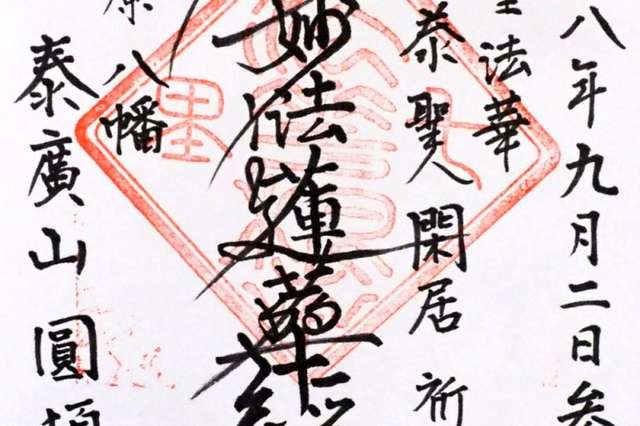 八年九月二日参
法華
泰聖人閑居祈
妙法蓮華経
原八幡
泰廣山圓頓